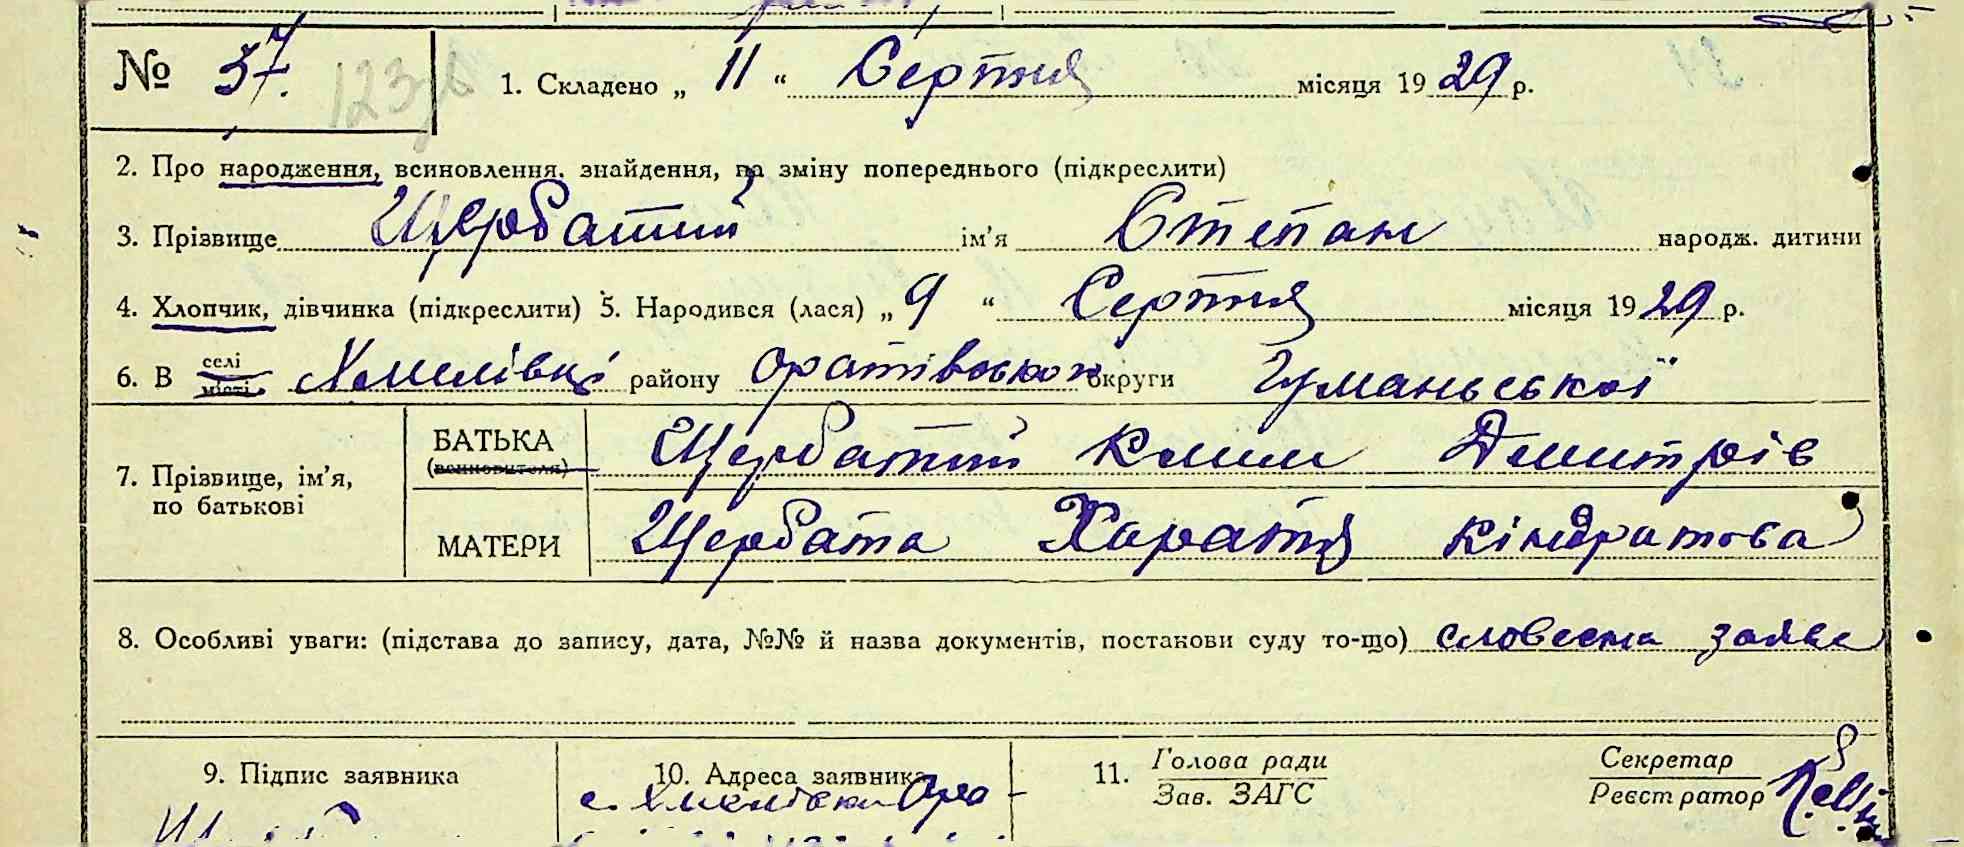 № 37. 1. Складено „ 11 “ Серпня місяця 1929 р.
2. Про народження, всиновлення, знайдення, на зміну попереднього (підкреслити)
3. Прізвище Щербатий ім’я Степан народж. дитини
4. Хлопчик, дівчинка (підкреслити) 5. Народився (лася) „ 9 “ Серпня місяця 1929 р.
6. В селі місті Хмелівці району Оратівського округи Гуманьської
7. Прізвище, ім’я, по батькові
БАТЬКА (всиновителя) Щербатий Клим Дмитрів
МАТЕРИ Щербата Харатя Кіндратова
8. Особливі уваги: (підстава до запису, дата, №№ й назва документів, постанови суду то-що) словесна заява
9. Підпис заявника 10. Адреса заявника 11. Голова ради Секретар
Зав. ЗАГС Реєстратор